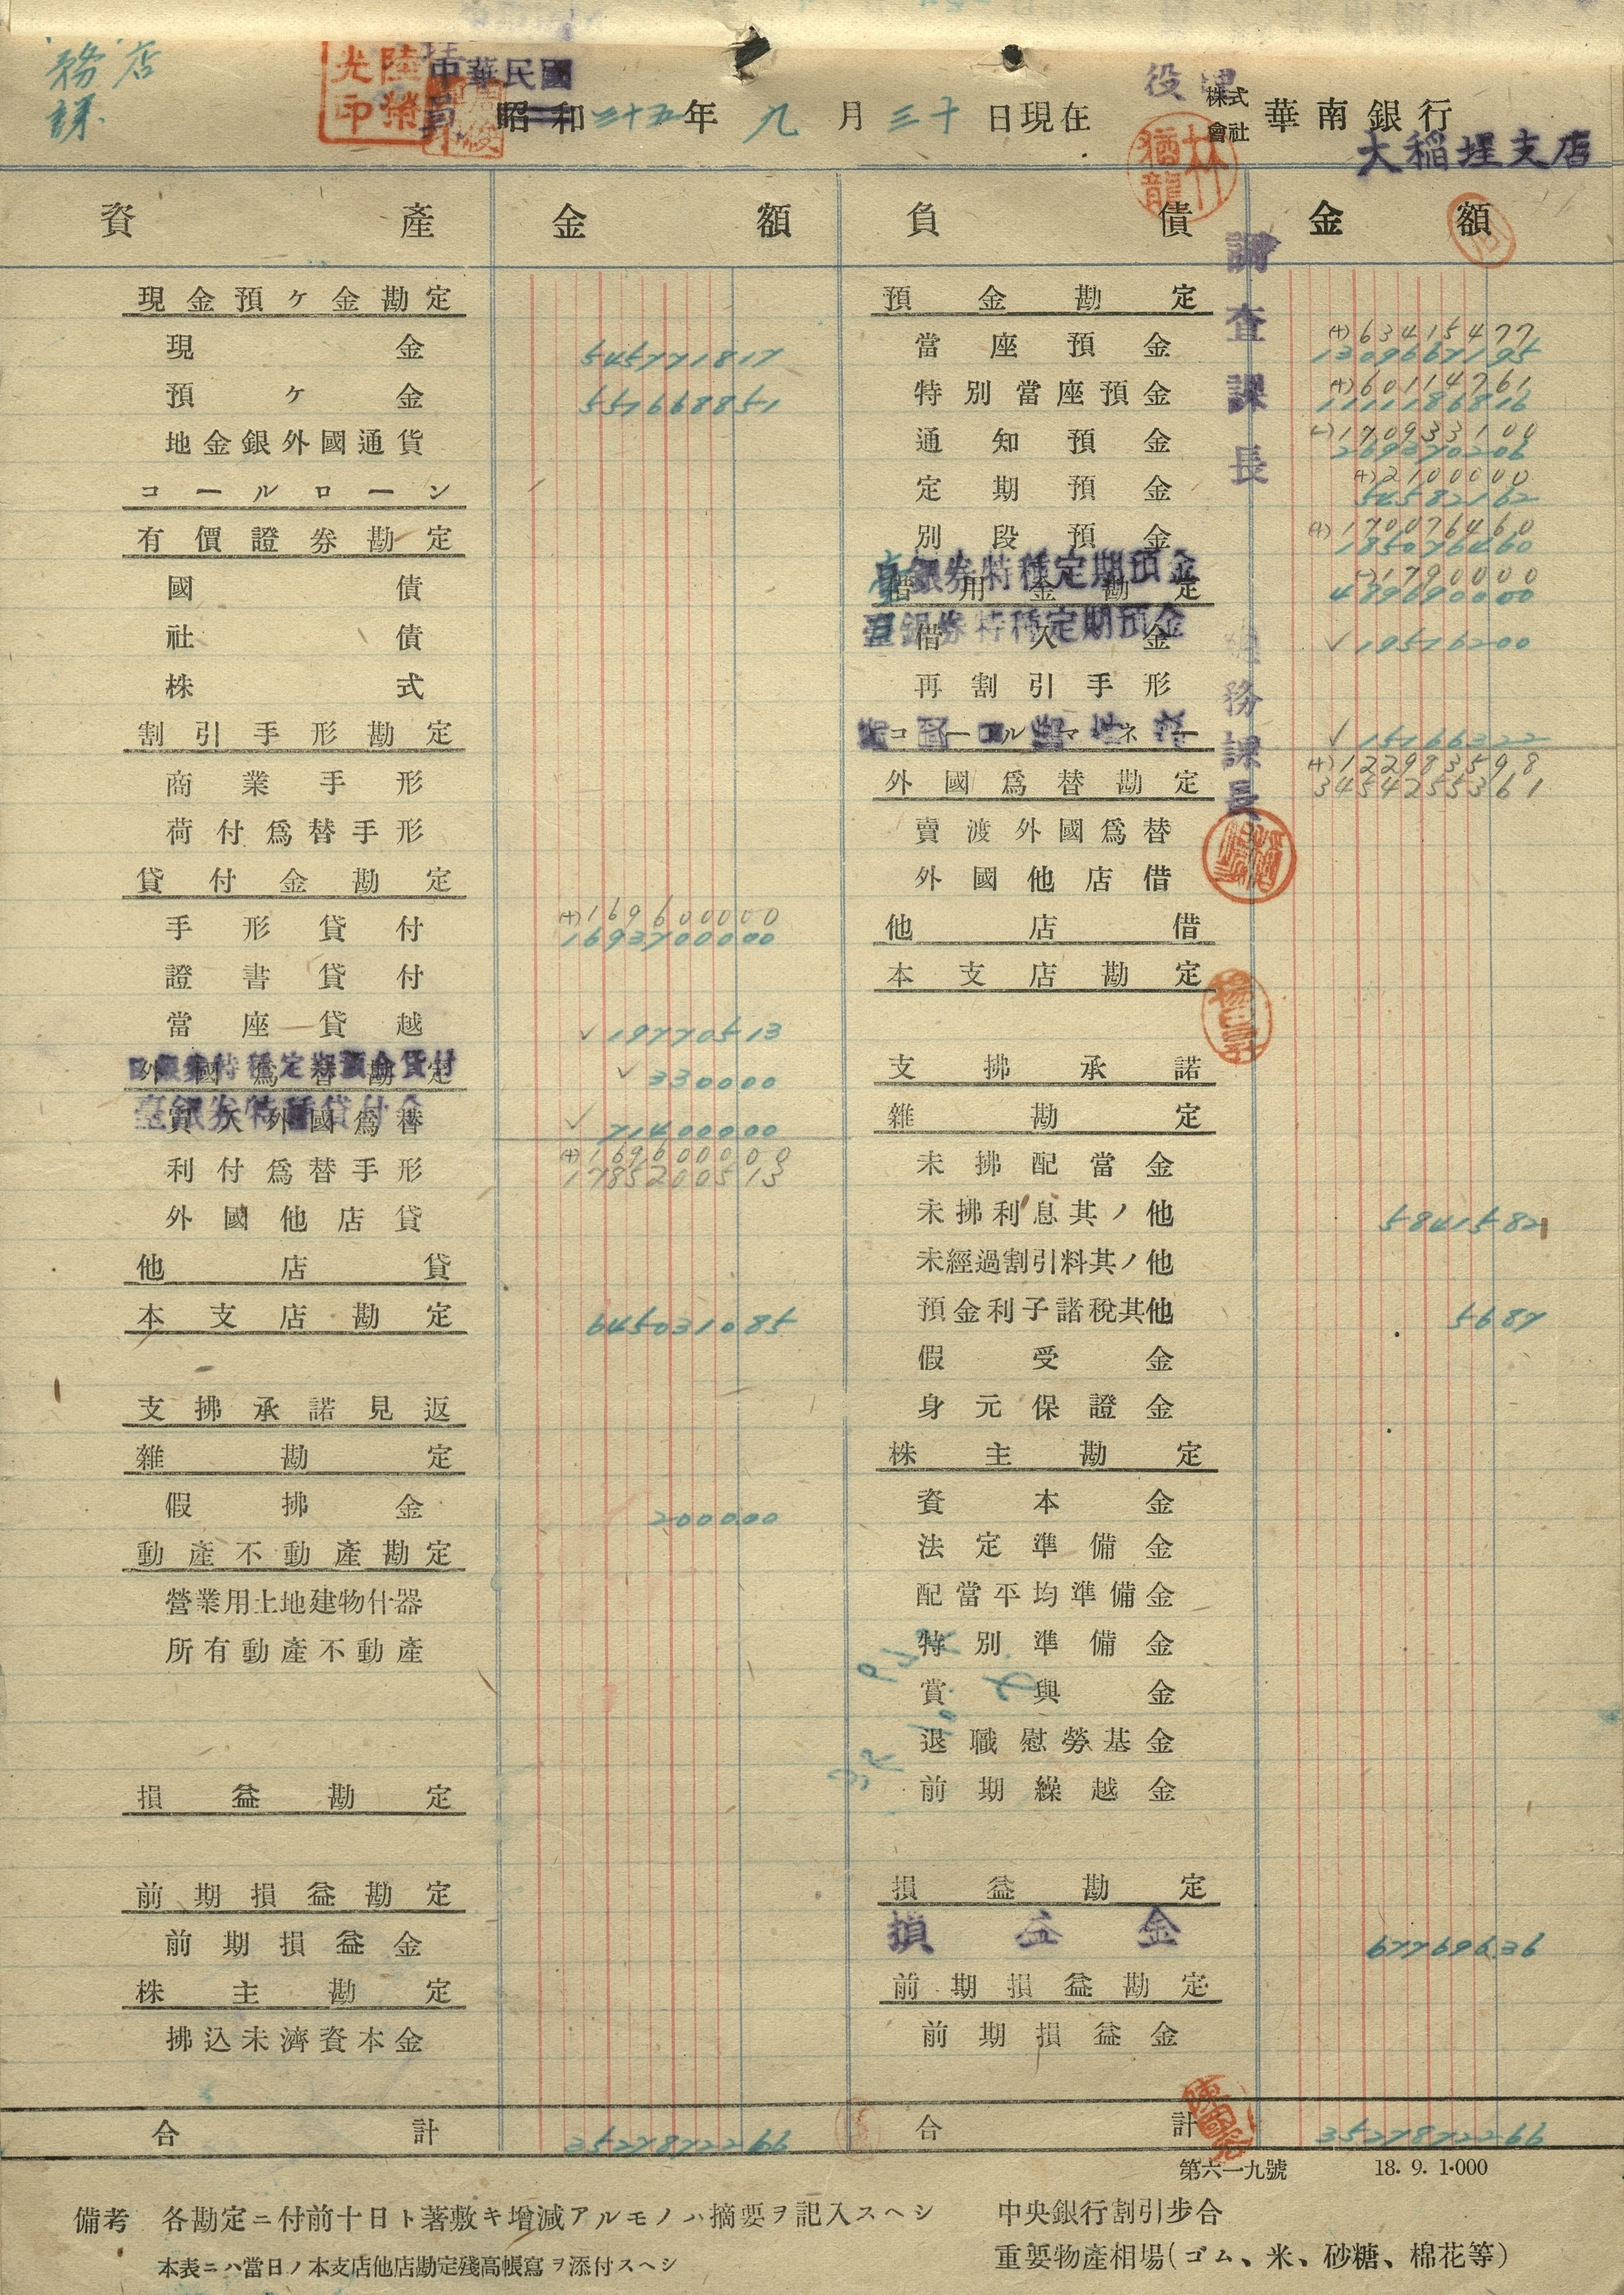 店
務
課
陸榮光印
中華民國
昭和三十五年九月三十日現在
株式會社 華南銀行
大稻埕支店
林猶龍
資產 金額 負債 金額
調查課長
務課長
現金預ケ金勘定
現金 545771817
預ケ金 557668851
地金銀外國通貨
コールローン
有價證券勘定
國債
社債
株式
割引手形勘定
商業手形
荷付爲替手形
貸付金勘定
手形貸付 (+)169600000
1693700000
證書貸付
當座貸越 ✓19770513
外國爲替勘定
日銀券特種定期預金貸付 ✓330000
買入外國爲替
臺銀券特種貸付金 ✓71400000
利付爲替手形 (+)169600000
1785200513
外國他店貸
他店貸
本支店勘定 645031085
支拂承諾見返
雜勘定
假拂金 200000
動產不動產勘定
營業用土地建物什器
所有動產不動產
損益勘定
前期損益勘定
前期損益金
株主勘定
拂込未濟資本金
合計 3527872266
預金勘定
當座預金 (+)63415477
1309667195
特別當座預金 (+)60114761
1111186816
通知預金 (-)170933100
269370206
定期預金 (+)2100000
54582162
別段預金 (+)170076460
185076460
借用金勘定
日銀券特種定期預金 (-)1790000
489690000
借入金
臺銀券特種定期預金 ✓19516200
再割引手形
コールマネー ✓15166322
外國爲替勘定 (+)122983598
3454255361
賣渡外國爲替
外國他店借
他店借
本支店勘定
支拂承諾
雜勘定
未拂配當金
未拂利息其ノ他 5841582
未經過割引料其ノ他
預金利子諸稅其他 5687
假受金
身元保證金
株主勘定
資本金
法定準備金
配當平均準備金
特別準備金
賞與金
退職慰勞基金
前期繰越金
損益勘定
損益金 67769636
前期損益勘定
前期損益金
合計 3527872266
第六一九號 18. 9. 1·000
備考 各勘定ニ付前十日ト著敷キ增減アルモノハ摘要ヲ記入スヘシ
本表ニハ當日ノ本支店他店勘定殘高帳寫ヲ添付スヘシ
中央銀行割引步合
重要物產相場(ゴム、米、砂糖、棉花等)